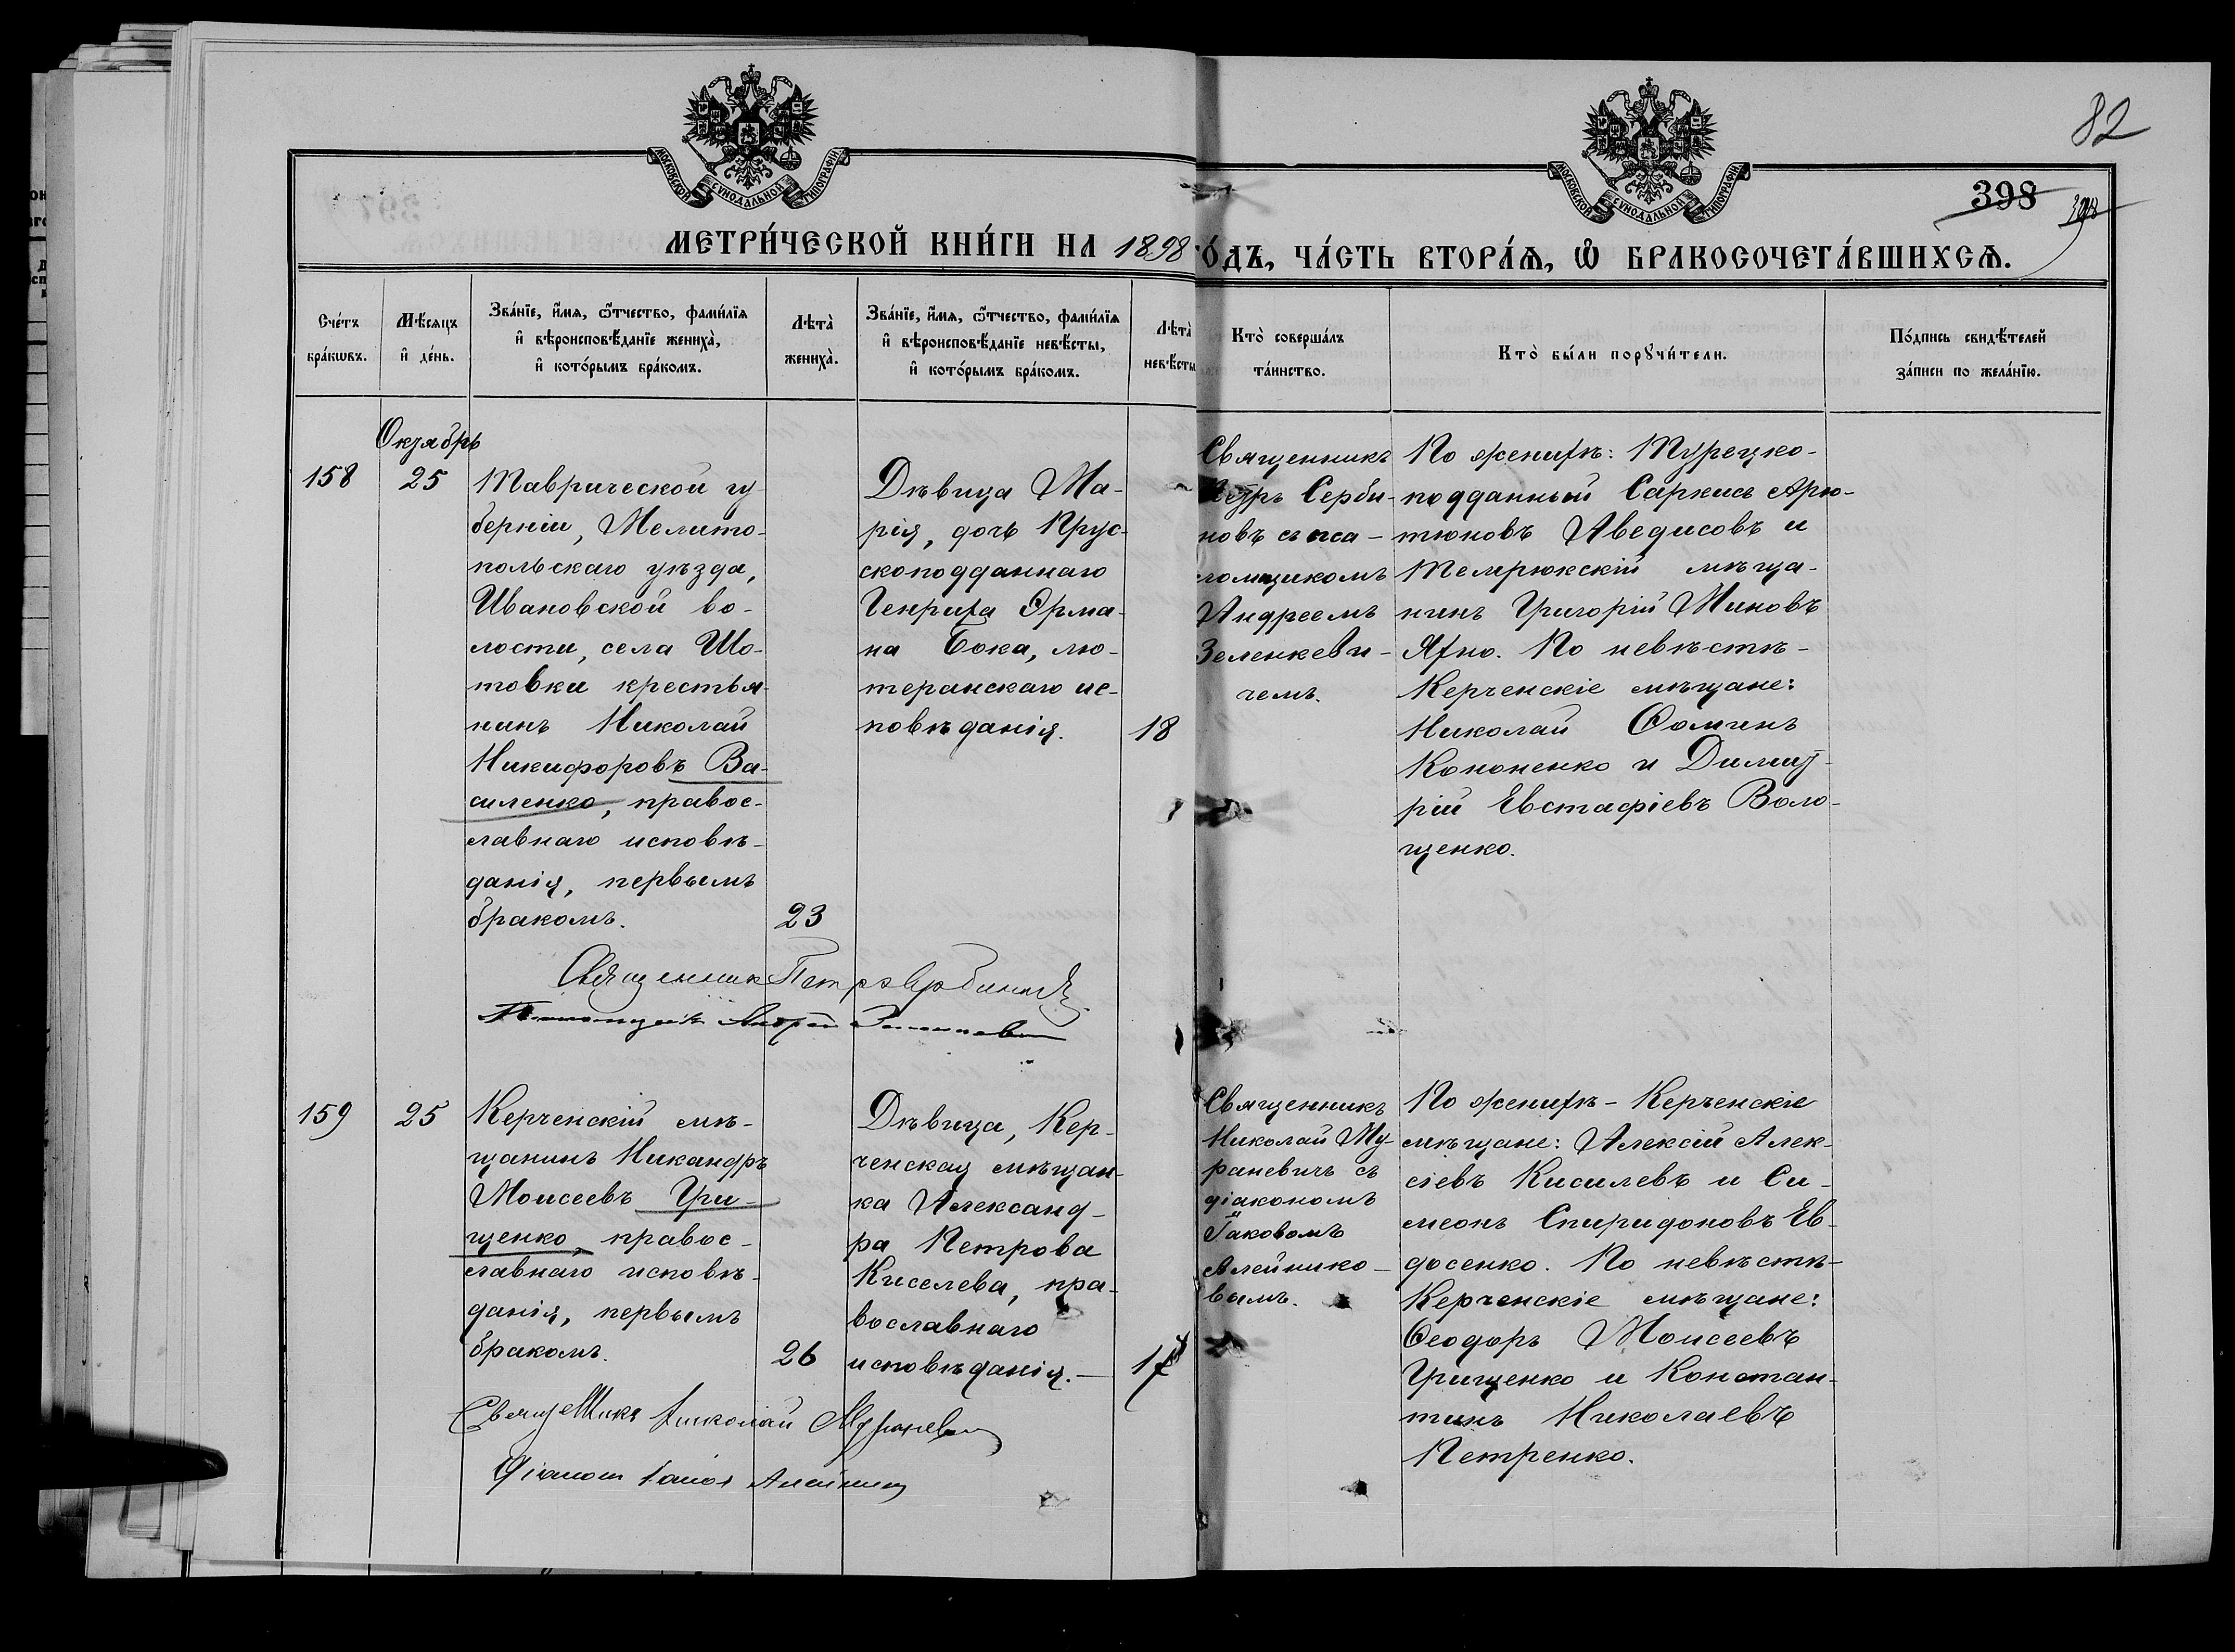 82
МОСКОВСКОЙ СУНОДАЛЬНОЙ ТИПОГРАФІИ
МОСКОВСКОЙ СУНОДАЛЬНОЙ ТИПОГРАФІИ
398
398
МЕТРИ́ЧЕСКОЙ КНИ́ГИ НА 1898 ГО́ДЪ, ЧА́СТЬ ВТОРА́Ѧ, Ѽ БРАКОСОЧЕТА́ВШИХСѦ.
Сче́тъ бра́кѡвъ.
Мѣ́сяцъ и҆ де́нь.
Зва́нїе, и҆́мѧ, ѻ҆́тчество, фами́лїѧ
и҆ вѣроисповѣ́данїе жениха̀,
и҆ кото́рымъ бра́комъ.
Лѣта̀ жениха̀.
Зва́нїе, и҆́мѧ, ѻ҆́тчество, фами́лїѧ
и҆ вѣроисповѣ́данїе невѣ́сты,
и҆ кото́рымъ бра́комъ.
Лѣта̀ невѣ́сты
Кто̀ соверша́лъ
та́инство.
Кто̀ бы́ли порꙋчи́тели.
По́дпись свидѣ́телей
за́писи по жела́нїю.
Октябрь
158
25
Таврической гу-
берніи, Мелито-
польскаго уѣзда,
Ивановской во-
лости, села Шо-
товки крестья-
нинъ Николай
Никифоровъ Ва-
силенко, правос-
лавнаго исповѣ-
данія, первымъ
бракомъ.
23
Дѣвица Ма-
рія, дочь Прус-
скоподданнаго
Генриха Эрма-
на Бока, лю-
теранскаго ис-
повѣданія.
18
Священникъ
Петръ Серби-
новъ съ пса-
ломщикомъ
Андреемъ
Зеленкеви-
чемъ.
По женихѣ: Турецко-
подданный Саркисъ Арю-
тюновъ Аведисовъ и
Темрюкскій мѣща-
нинъ Григорій Миновъ
Яхно. По невѣстѣ-
Керченскіе мѣщане:
Николай Ѳоминъ
Кононенко и Димит-
рій Евстафіевъ Воло-
щенко.
Священник Петръ Сербиновъ
Псаломщикъ Андрей Зеленкевич
159
25
Керченскій мѣ-
щанинъ Никандръ
Моисеевъ Гри-
щенко, правос-
лавнаго исповѣ-
данія, первымъ
бракомъ.
26
Дѣвица, Кер-
ченская мѣщан-
ка Александ-
ра Петрова
Киселева, пра-
вославнаго
исповѣданія.—
17
Священникъ
Николай Му-
раневичъ съ
діакономъ
Іаковомъ
Алейнико-
вымъ.
По женихѣ - Керченскіе
мѣщане: Алексій Алек-
сіевъ Кисилевъ и Си-
меонъ Спиридоновъ Ев-
досенко. По невѣстѣ-
Керченскіе мѣщане:
Ѳеодоръ Моисеевъ
Грищенко и Констан-
тинъ Николаевъ
Петренко.
Священникъ Николай Мураневич
Діаконъ Іаковъ Алейников